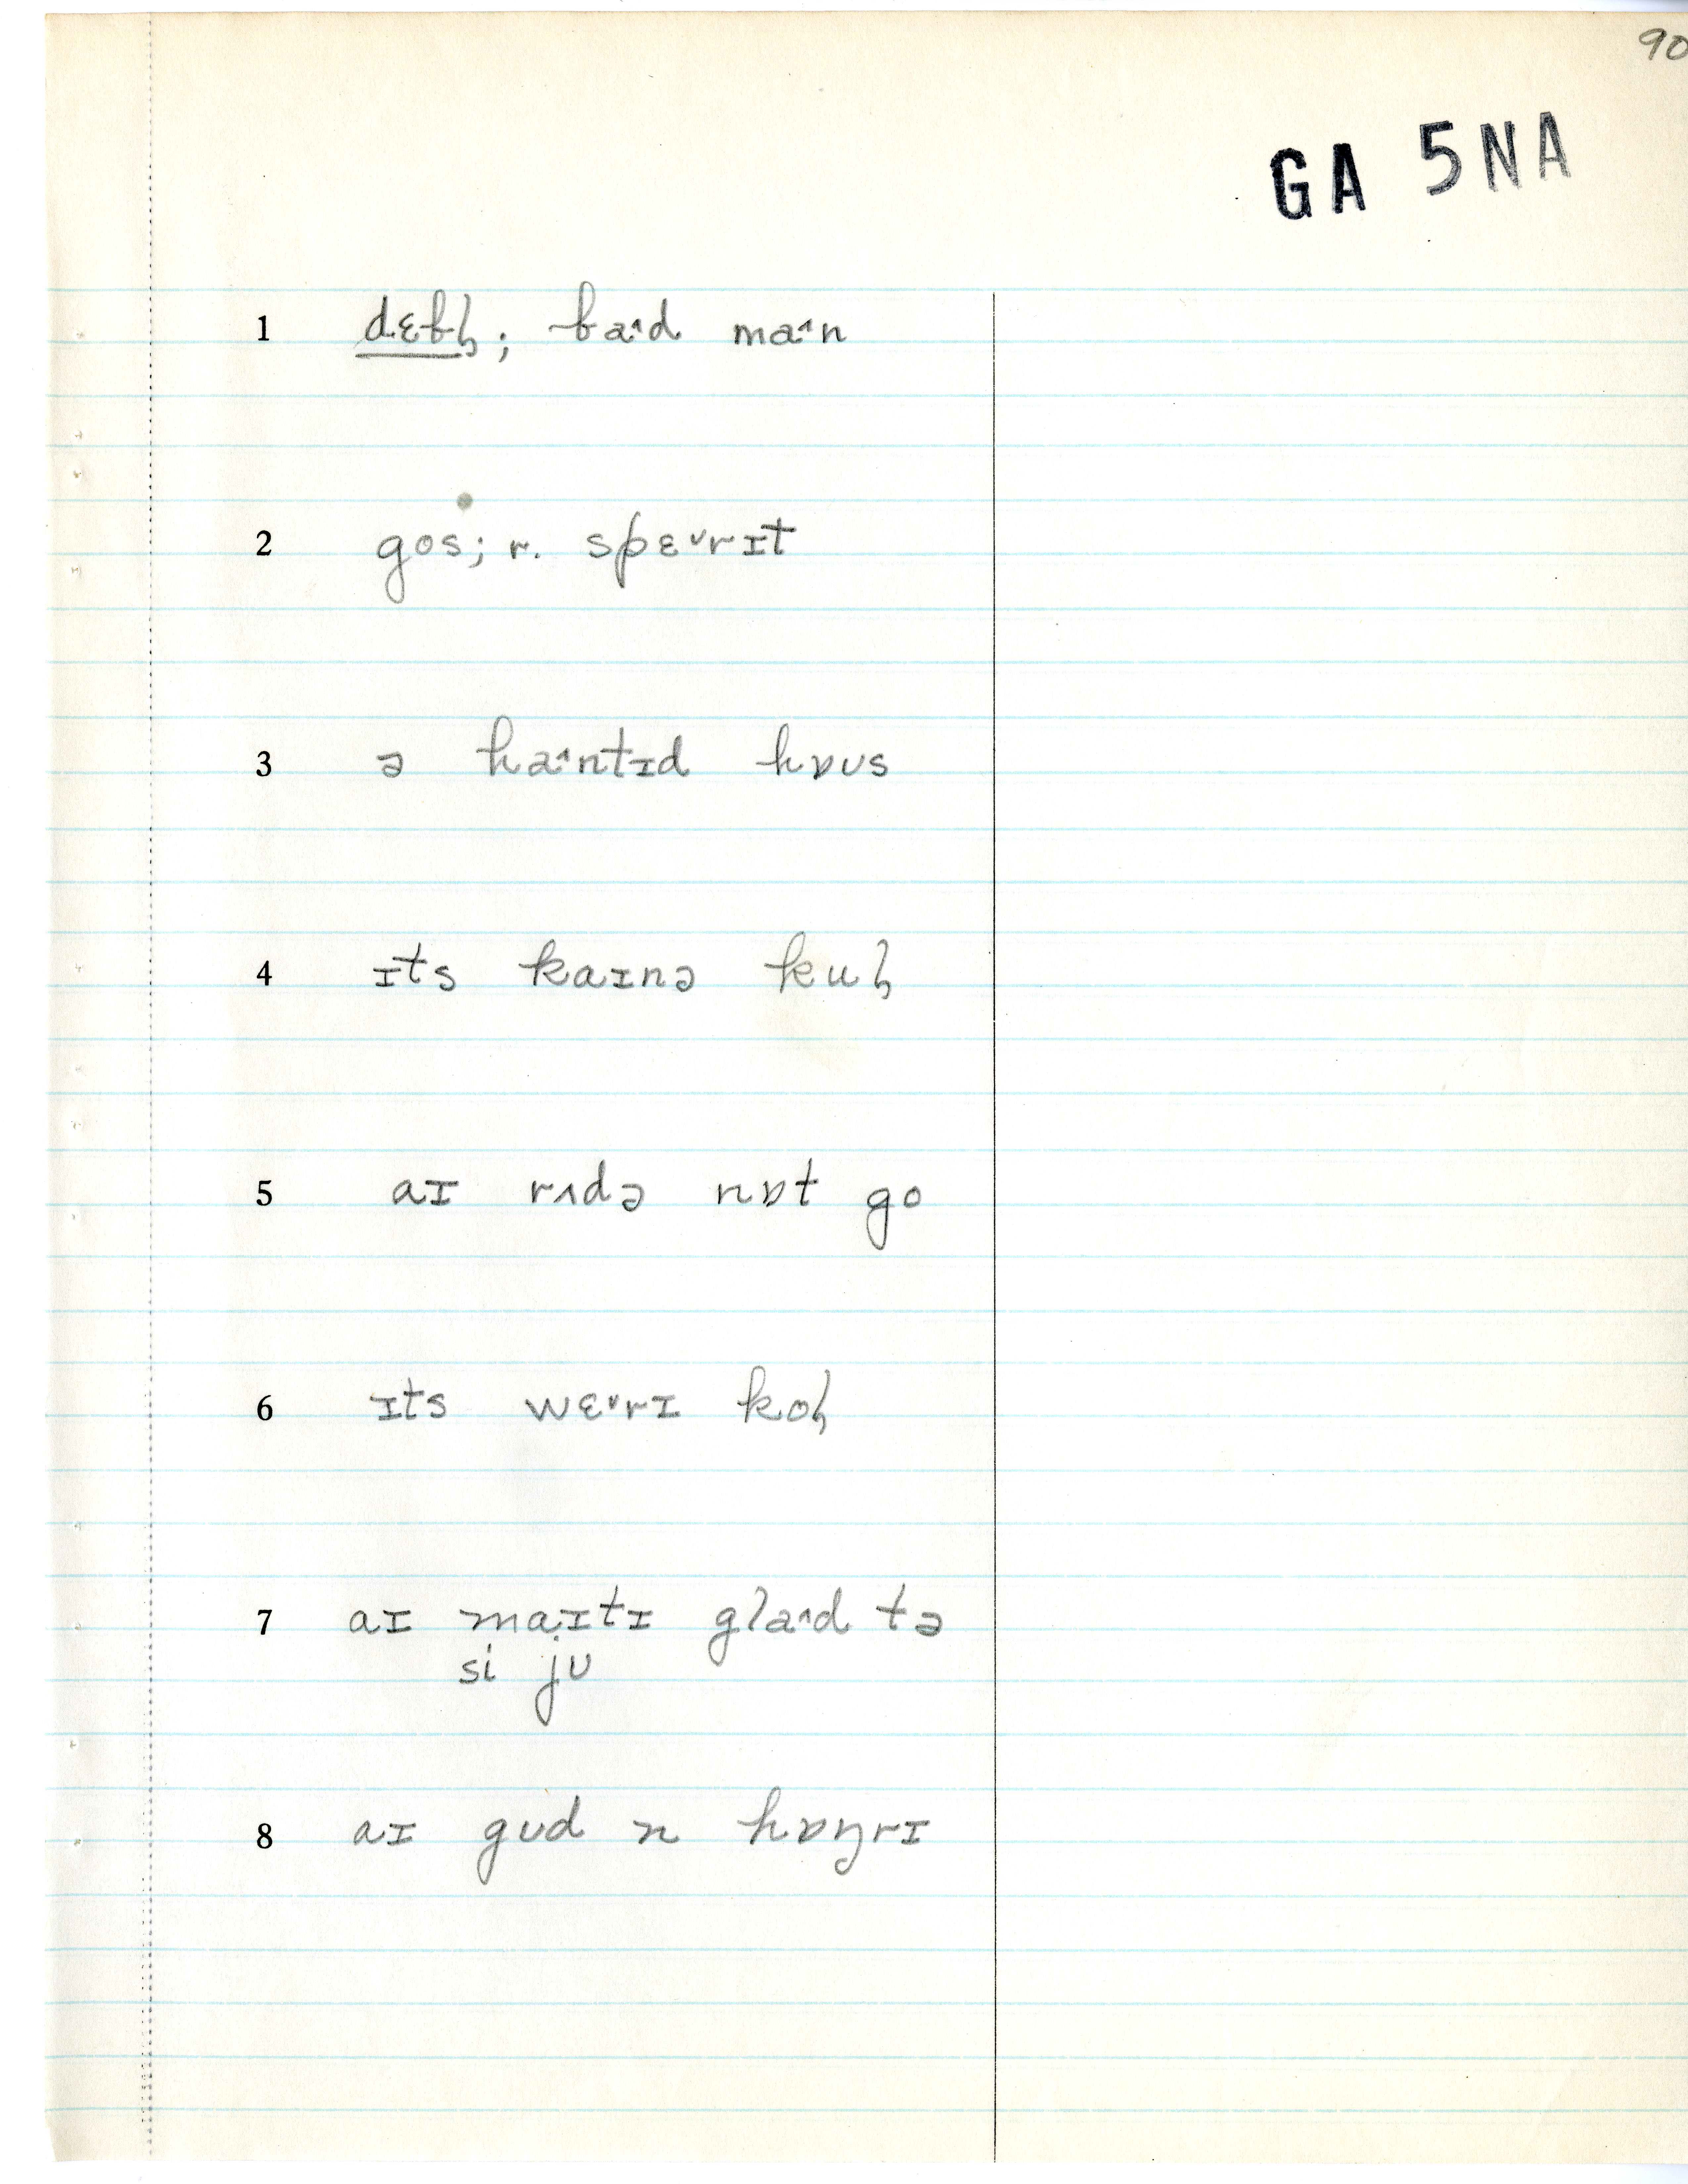 90
GA 5NA
1 dɛbl̡; ba˄d ma˄n
2 gos; r. spɛ˅rɪt
3 ə ha˄ntɪd hɒʊs
4 ɪts kaɪnə kul̡
5 aɪ rʌdə nɒt go
6 ɪts wɛ˅rɪ kol̡
7 aɪ maɪtɪ gla˄d tə
si jʊ
8 aɪ gʊd n hɒŋrɪ